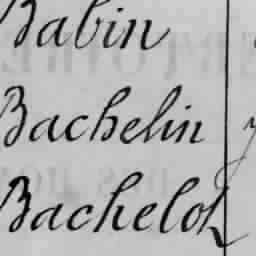 Babin
Bachelin
Bachelot